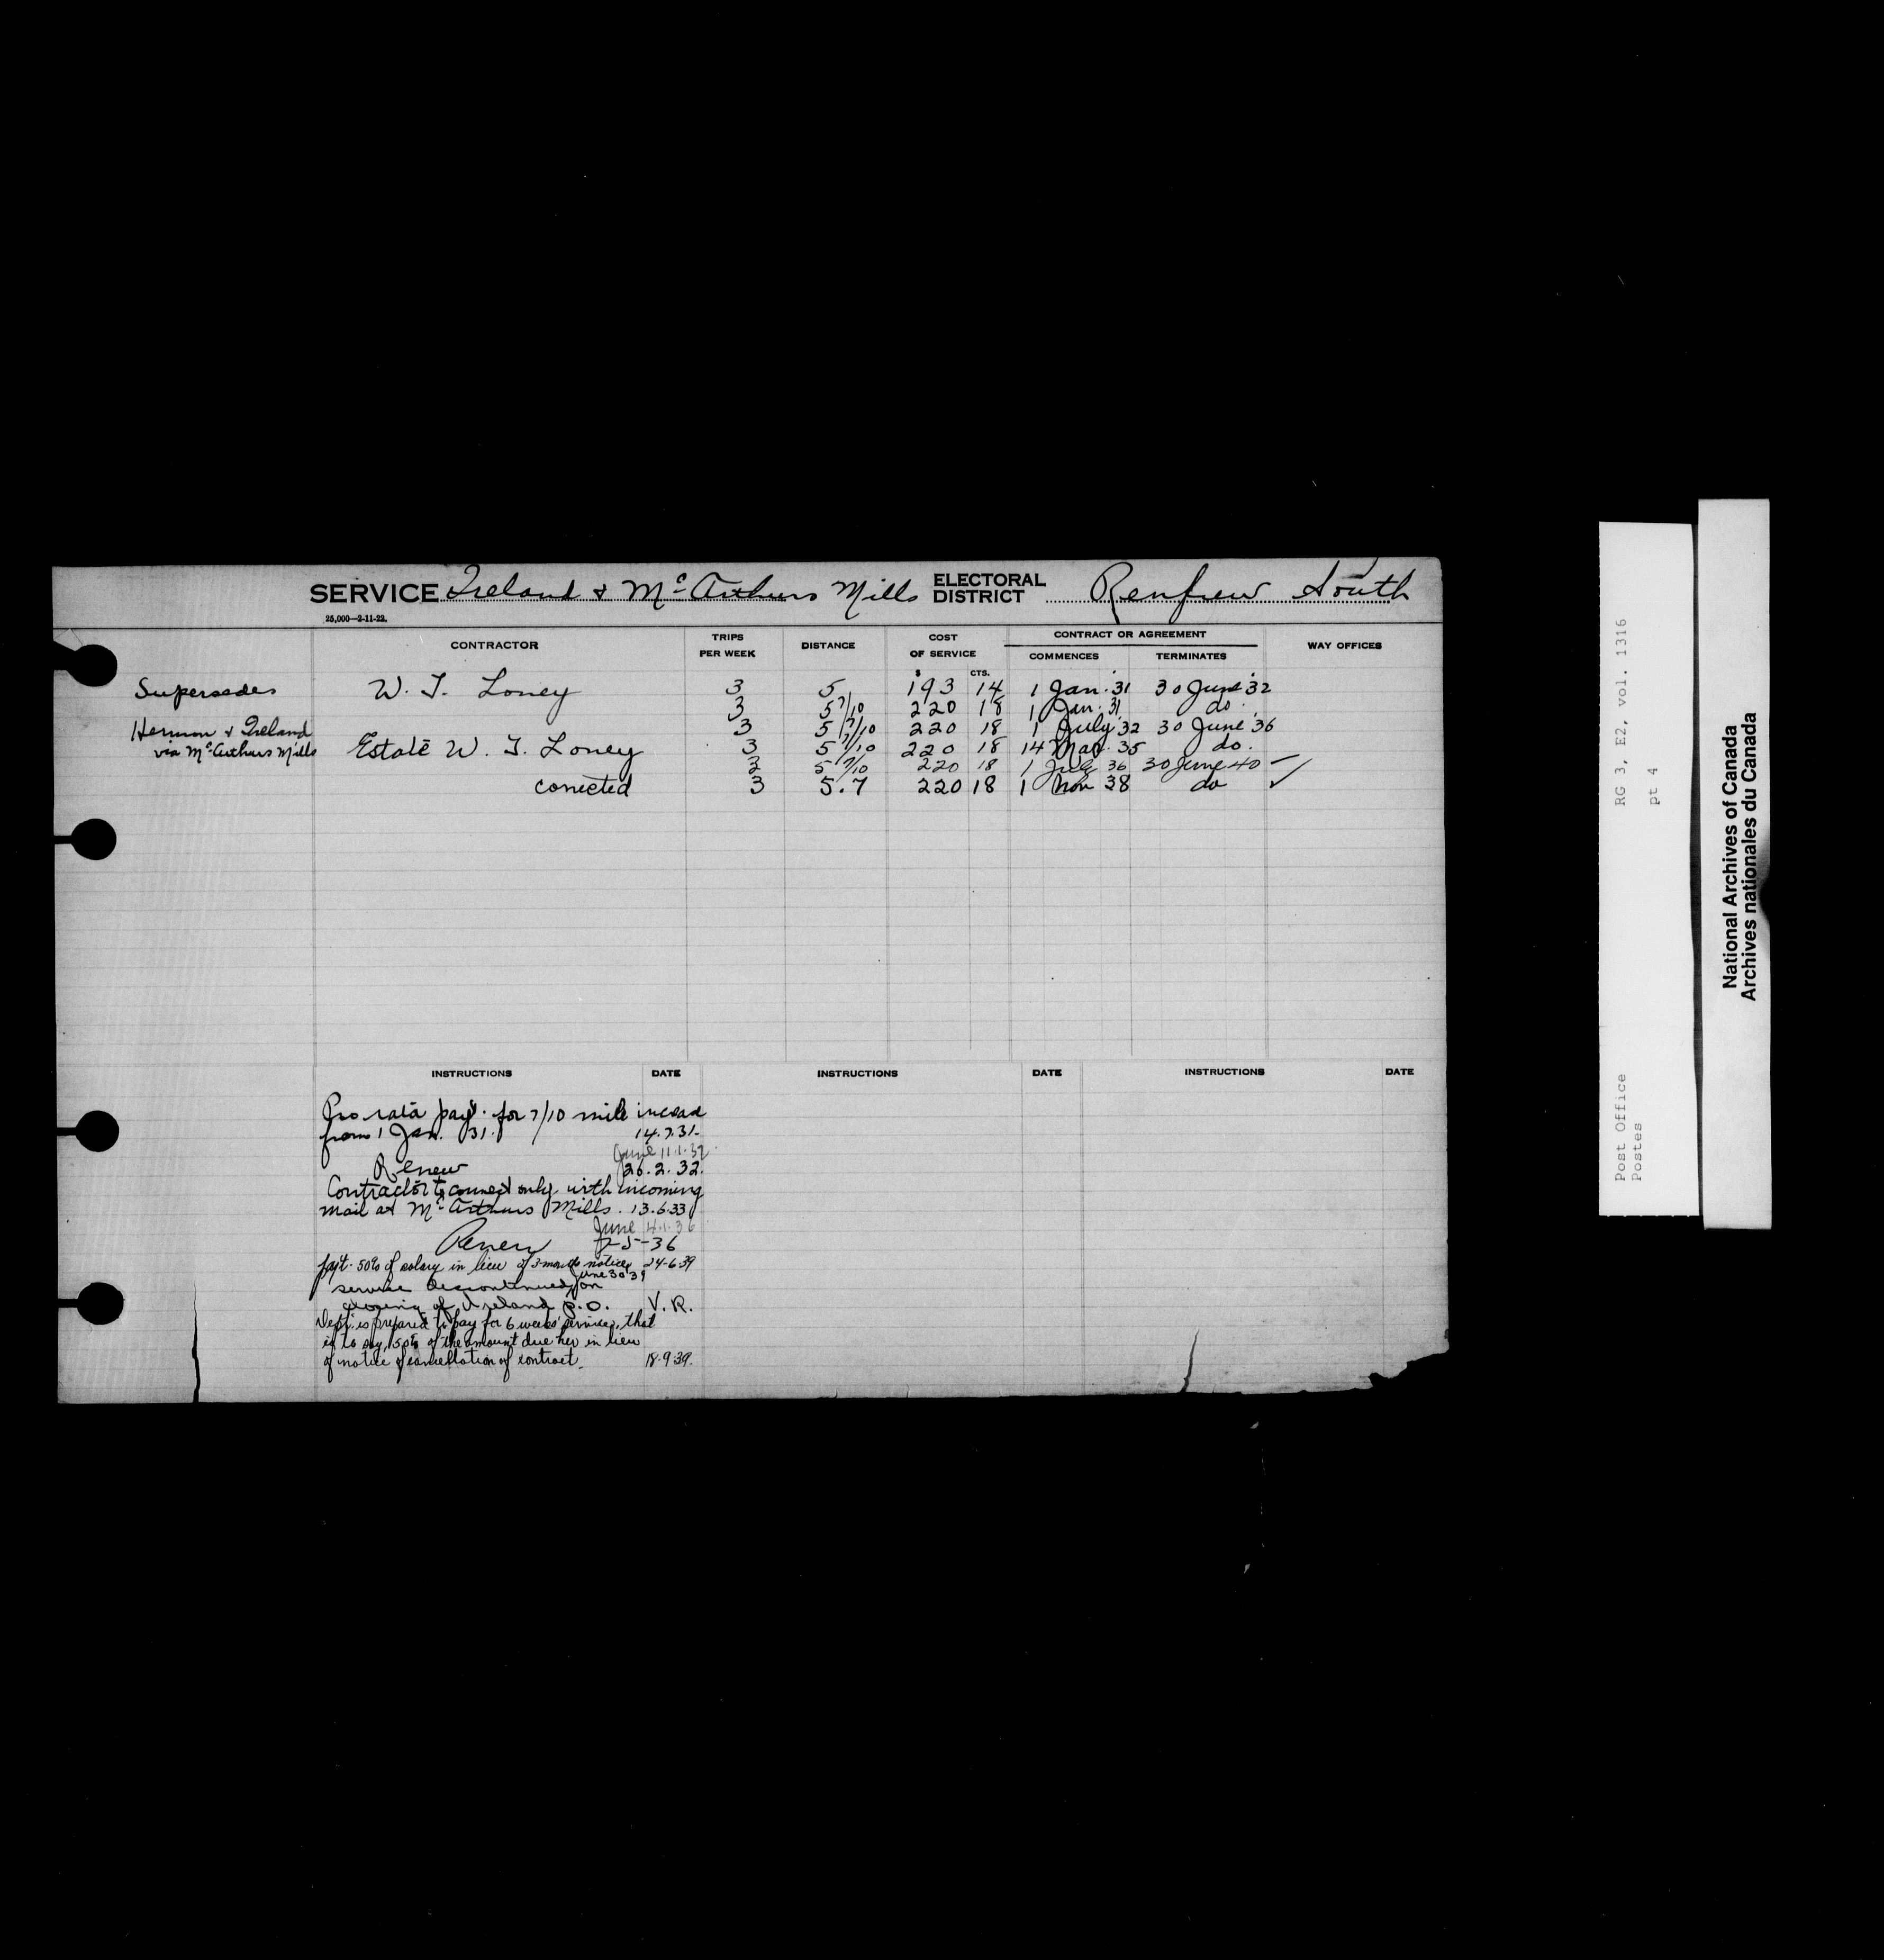 SERVICE Ireland & McArthurs Mills ELECTORAL DISTRICT Renfrew South
25,000—2-11-22.
CONTRACTOR TRIPS PER WEEK DISTANCE COST OF SERVICE CONTRACT OR AGREEMENT WAY OFFICES
COMMENCES TERMINATES
$ CTS.
Supersedes W. T. Loney 3 5 193 14 1 Jan. 31 30 June '32
3 5 7/10 220 18 1 Jan. 31 do.
Hermon & Ireland 3 5 7/10 220 18 1 July '32 30 June '36
via McArthurs Mills Estate W. T. Loney 3 5 7/10 220 18 14 Mar. 35 do.
3 5 7/10 220 18 1 July 36 30 June 40 —
corrected 3 5.7 220 18 1 Nov 38 do ✓
INSTRUCTIONS DATE INSTRUCTIONS DATE INSTRUCTIONS DATE
Pro rata payt. for 7/10 mile
from 1 Jan. 31. 14.7.31.
June 11.1.32
Renew 26.2.32.
Contractor to connect only with incoming
mail at McArthurs Mills. 13.6.33
June 4.1.36
Renew 2-5-36
payt. 50% of salary in lieu of 3 months notice 24-6-39
June 30 39
service discontinued on
closing of Ireland P.O. V. R.
Dept. is prepared to pay for 6 weeks' services, that
is to say, 50% of the amount due her in lieu
of notice of cancellation of contract. 18.9.39.
RG 3, E2, vol. 1316
pt 4
Post Office
Postes
National Archives of Canada
Archives nationales du Canada